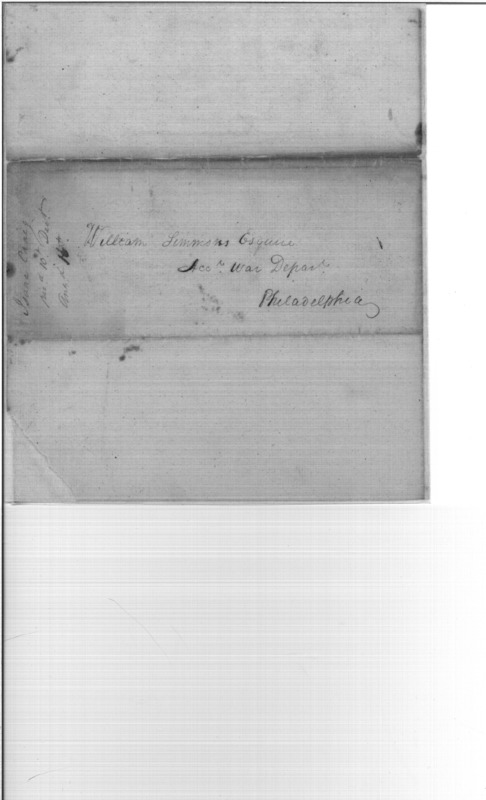 William Simmons Esquire
Acc.t War Depart.
Philadelphia
Isaac Craig